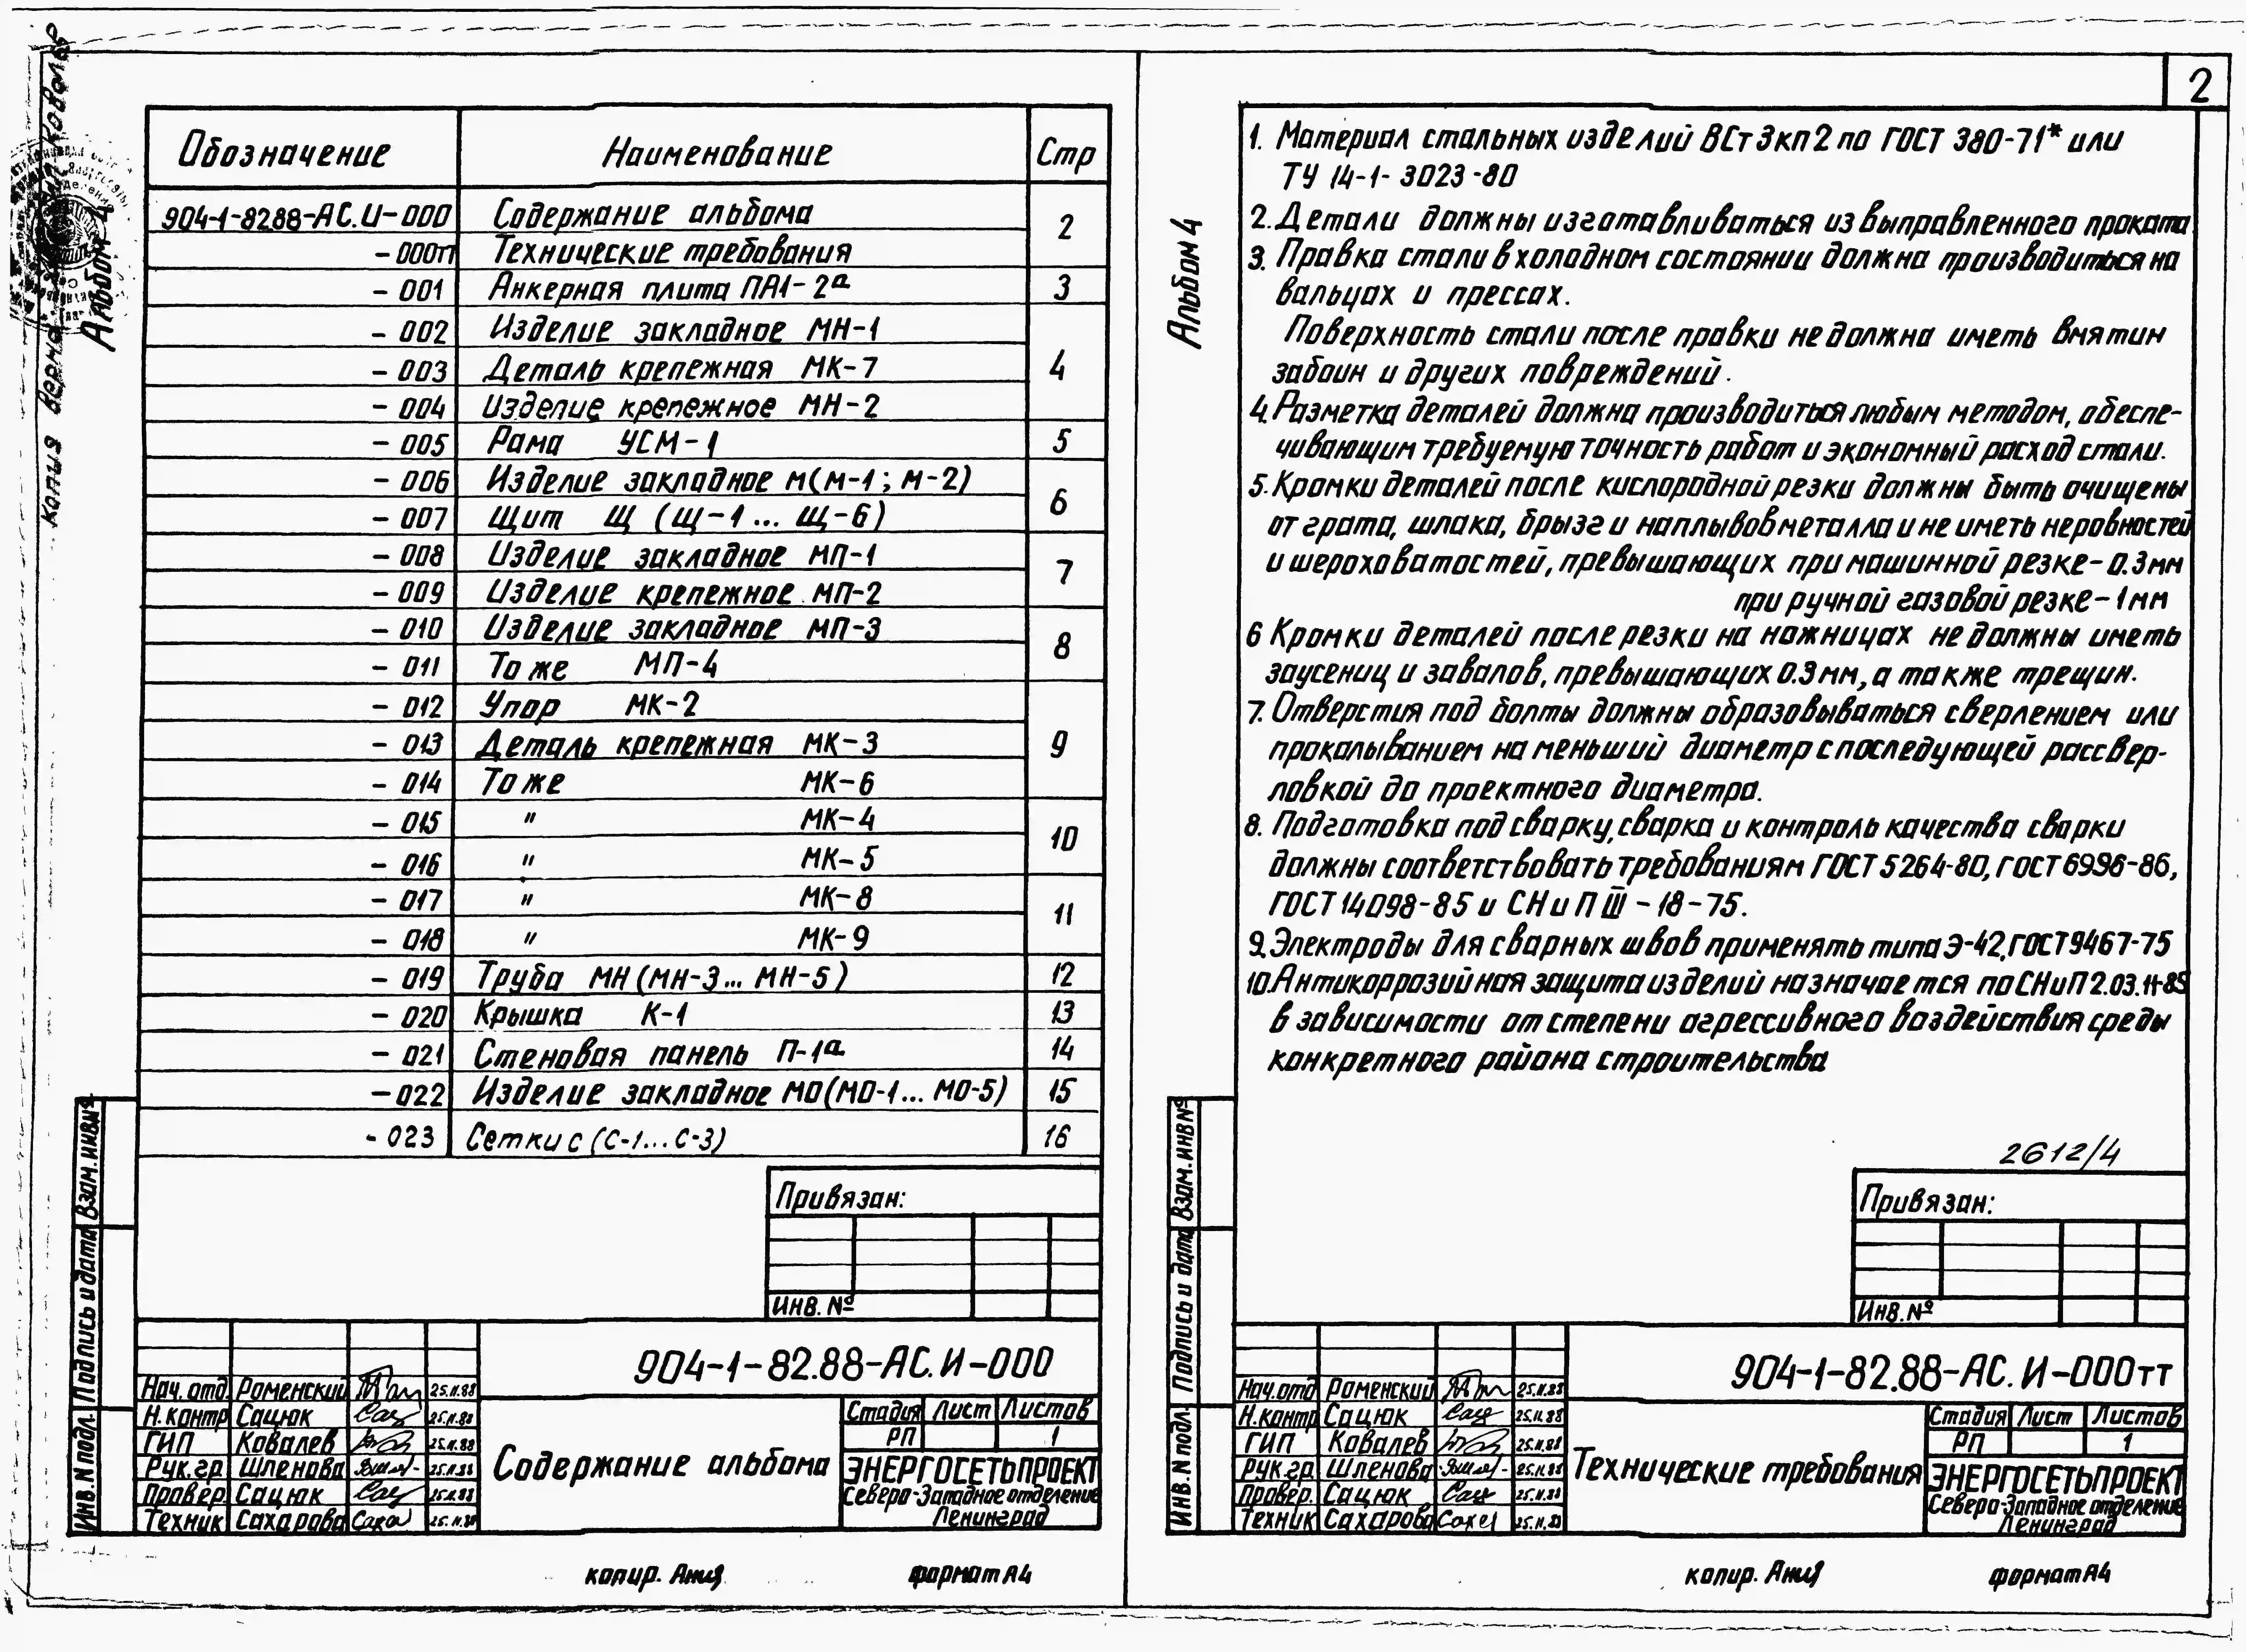 Копия верна Ковалев
Альбом 4
Обозначение Наименование Стр
904-1-82.88-АС.И-000 Содержание альбома 2
-000тт Технические требования
-001 Анкерная плита ПА1-2а 3
-002 Изделие закладное МН-1 4
-003 Деталь крепежная МК-7
-004 Изделие крепежное МН-2
-005 Рама УСМ-1 5
-006 Изделие закладное М(М-1; М-2) 6
-007 Щит Щ (Щ-1... Щ-6)
-008 Изделие закладное МП-1 7
-009 Изделие крепежное МП-2
-010 Изделие закладное МП-3 8
-011 То же МП-4
-012 Упор МК-2 9
-013 Деталь крепежная МК-3
-014 То же МК-6
-015 " МК-4 10
-016 " МК-5
-017 " МК-8 11
-018 " МК-9
-019 Труба МН(МН-3... МН-5) 12
-020 Крышка К-1 13
-021 Стеновая панель П-1а 14
-022 Изделие закладное МО(МО-1... МО-5) 15
-023 Сетки С (С-1...С-3) 16
Привязан:
Инв. №
904-1-82.88-АС.И-000
Нач.отд. Роменский 25.11.88
Н.контр Сацюк 25.11.88
ГИП Ковалев 25.11.88
Рук.гр. Шленова 25.11.88
Провер. Сацюк 25.11.88
Техник Сахарова 25.11.88
Содержание альбома
Стадия Лист Листов
РП 1
ЭНЕРГОСЕТЬПРОЕКТ
Северо-Западное отделение
Ленинград
Инв.N подл. Подпись и дата Взам.инв№
копир. Анид формат А4
2
Альбом 4
1. Материал стальных изделий ВСт3кп2 по ГОСТ 380-71* или
ТУ 14-1-3023-80
2. Детали должны изготавливаться из выправленного проката
3. Правка стали в холодном состоянии должна производиться на
вальцах и прессах.
Поверхность стали после правки не должна иметь вмятин
забоин и других повреждений.
4. Разметка деталей должна производиться любым методом, обеспе-
чивающим требуемую точность работ и экономный расход стали.
5. Кромки деталей после кислородной резки должны быть очищены
от грата, шлака, брызг и наплывов металла и не иметь неровностей
и шероховатостей, превышающих при машинной резке-0.3мм
при ручной газовой резке-1мм
6 Кромки деталей после резки на ножницах не должны иметь
заусениц и завалов, превышающих 0.3мм, а также трещин.
7. Отверстия под болты должны образовываться сверлением или
прокалыванием на меньший диаметр с последующей рассвер-
ловкой до проектного диаметра.
8. Подготовка под сварку, сварка и контроль качества сварки
должны соответствовать требованиям ГОСТ 5264-80, ГОСТ 6996-86,
ГОСТ 14098-85 и СНиП III-18-75.
9. Электроды для сварных швов применять типа Э-42, ГОСТ 9467-75
10. Антикоррозийная защита изделий назначается по СНиП 2.03.11-85
в зависимости от степени агрессивного воздействия среды
конкретного района строительства
2612/4
Привязан:
Инв. №
904-1-82.88-АС.И-000тт
Нач.отд Роменский 25.11.88
Н.контр Сацюк 25.11.88
ГИП Ковалев 25.11.88
Рук.гр. Шленова 25.11.88
Провер. Сацюк 25.11.88
Техник Сахарова 25.11.88
Технические требования
Стадия Лист Листов
РП 1
ЭНЕРГОСЕТЬПРОЕКТ
Северо-Западное отделение
Ленинград
Инв.N подл. Подпись и дата Взам.инв№
копир. Анид формат А4